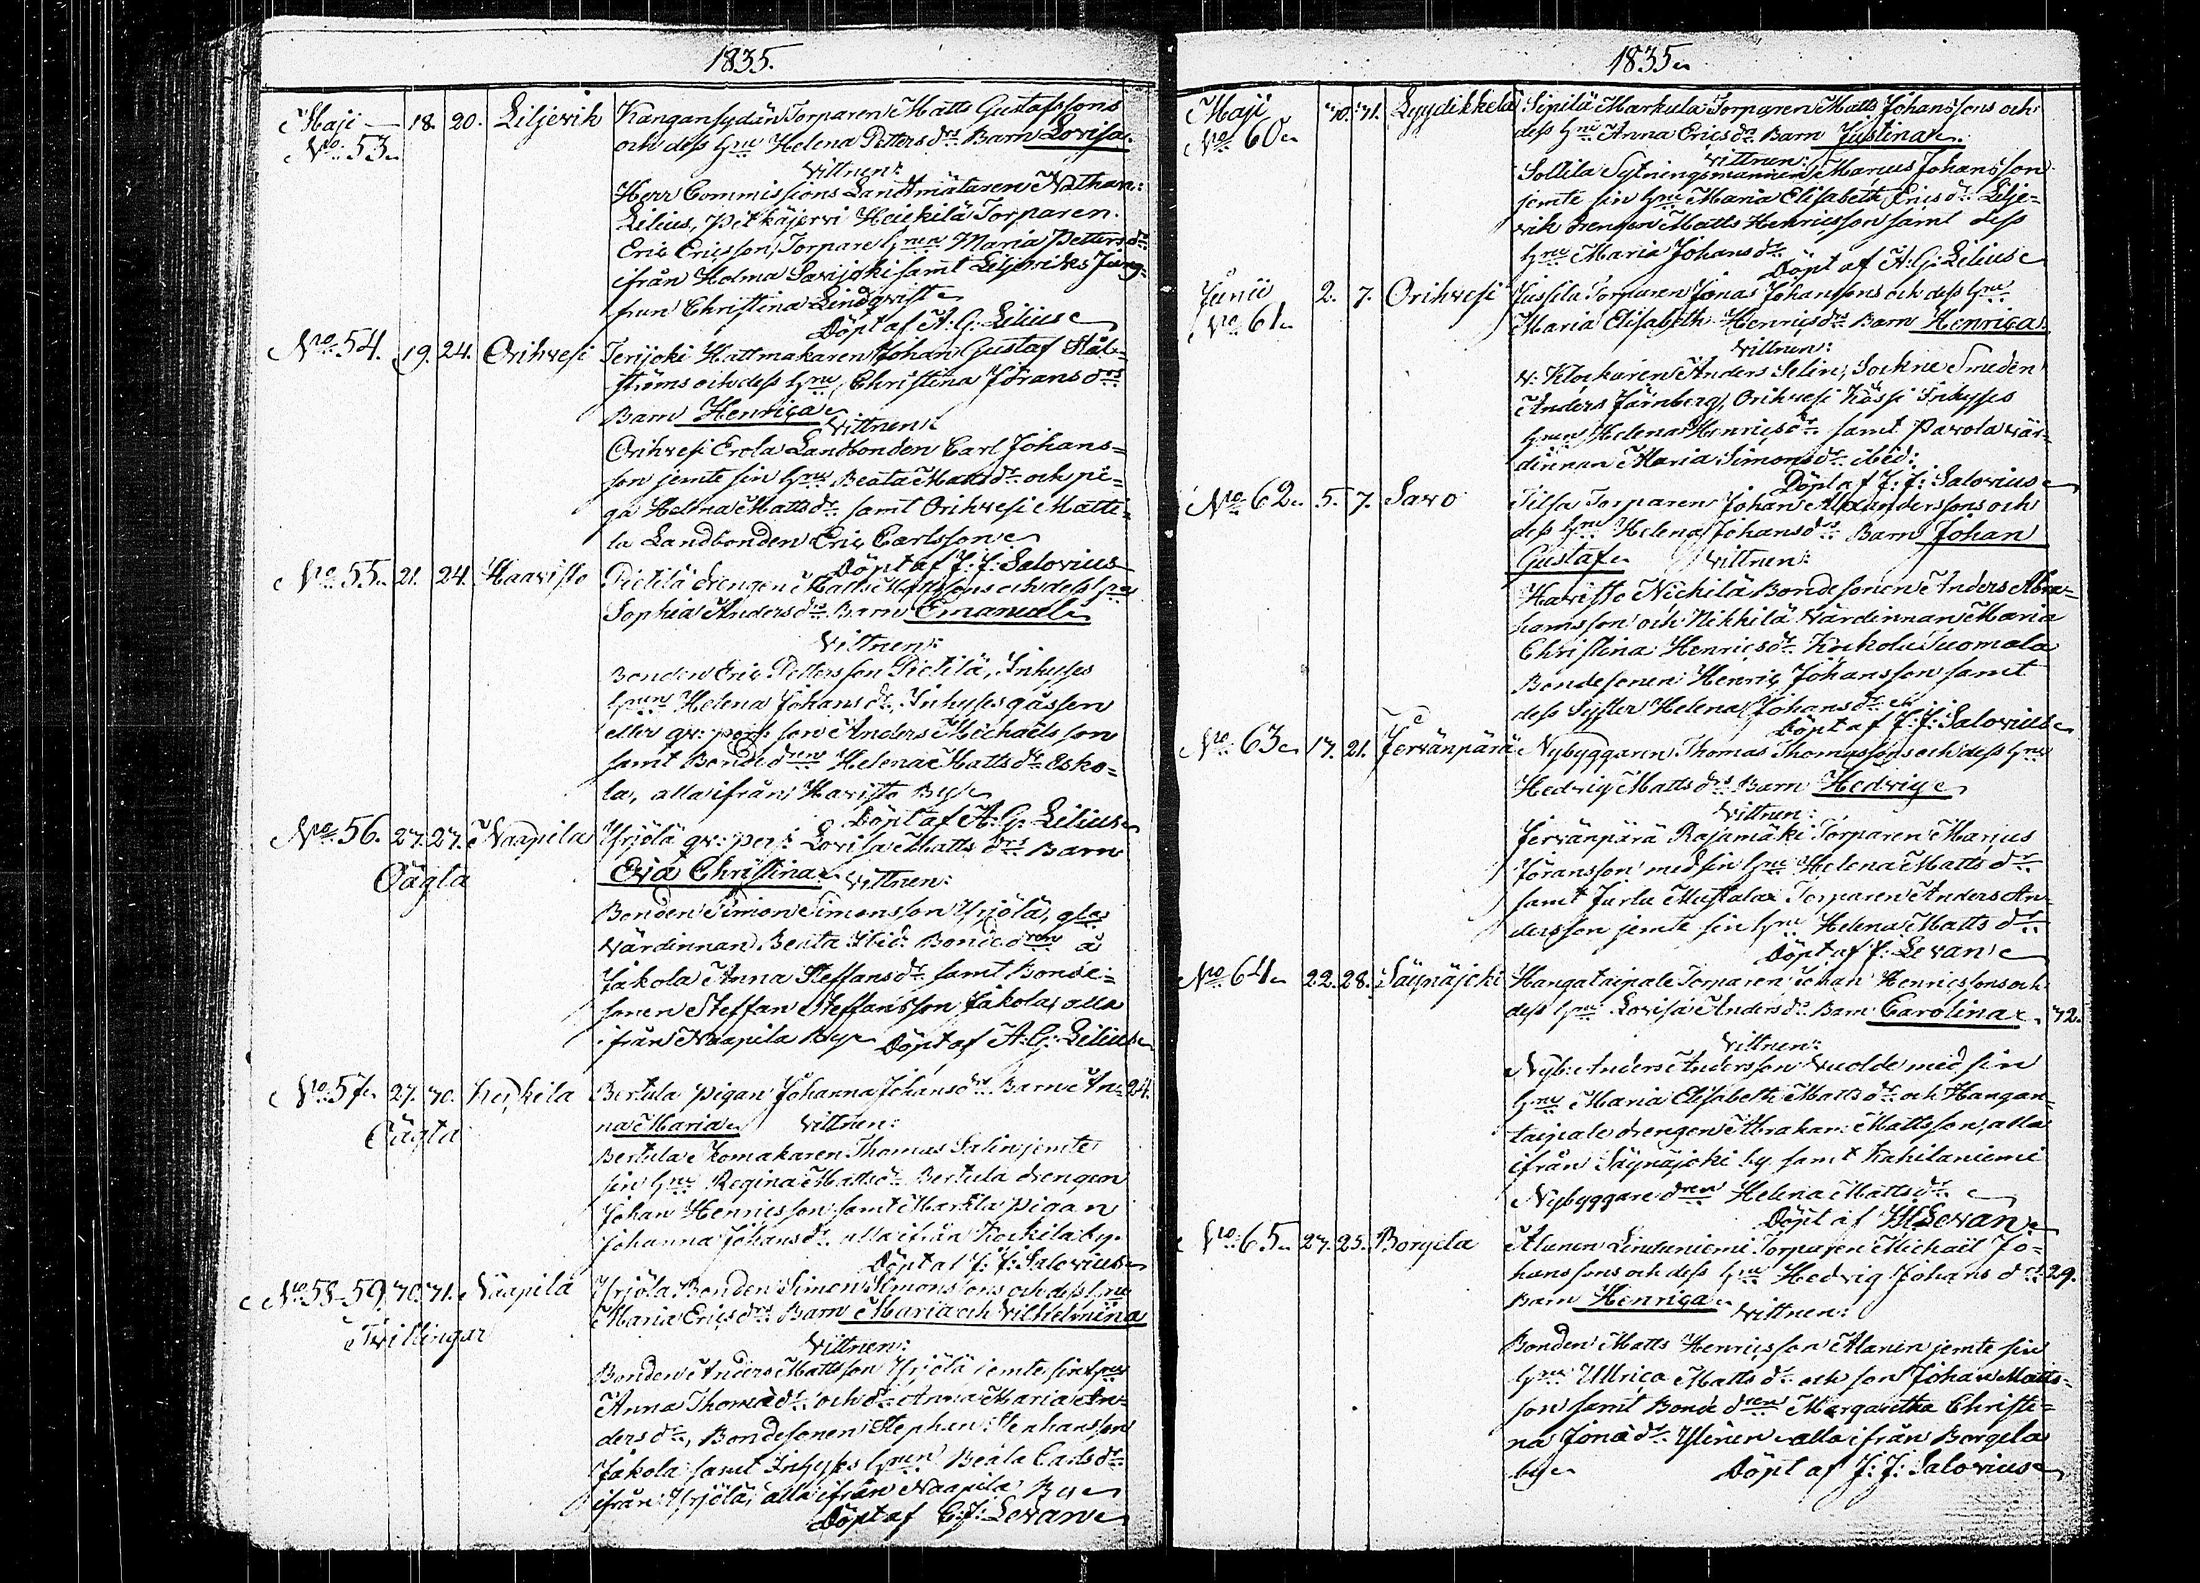 1835.
Maji 18. 20. Liljevik Kangansydän Torparen Matts Gustafssons
No: 53. och dess Hru Helena Petters dr Barn Lovisa.
Vittnen:
Herr Commissions Landtmätaren Nathan:
Lilius, Pitkäjervi Heikilä Torparen
Eric Ericsson, Torpare Hrun Maria Petters dr
ifrån Holma Savijoki samt Liljeviks Jung-
frun Christina Lindqvist
Döpt af A: G: Lilius
No 54. 19. 24. Orihvesi Terijoki Hattmakaren Johan Gustaf Stål-
ströms och dess Hru Christina Jörans drs
Barn Henrica
Vittnen:
Orihvesi Erola Landbonden Carl Johans-
son jemte sin Hru Beata Matts dr och pi-
ga Helena Matts dr samt Orihvesi Matti-
la Landbonden Eric Carlsson
Döpt af J: J: Salovius
No 55. 21. 24. Haavisto Pietilä drengen Matts Mattssons och dess Hru
Sophia Anders drs Barn Emanuel
Vittnen:
Bonden Eric Pettersson Pietilä, Inhyses
Hrun Helena Johans dr, Inhyses gåssen
eller qv: pers: son Anders Michaelsson
samt Bonde dren Helena Matts dr Esko-
la, alla ifrån Havisto By
Döpt af A: G: Lilius
No 56. 27. 27. Naapila Yrjölä qv: pers: Lovisa Matts drs Barn
Oägta Eva Christina Vittnen:
Bonden Simon Simonsson Yrjölä, gla
Värdinnan Beata Ibid: Bonde dren å
Jakola Anna Steffans dr samt Bonde-
sonen Steffan Steffansson Jakola, alla
ifrån Naapila By Döpt af A: G: Lilius
No 57. 27. 30. Keikila Bertula pigan Johanna Johans drs Barn An- 24.
Oägta na Maria Vittnen:
Bertula Skomakaren Thomas Salin jemte
sin Hru Regina Matts dr Bertula drengen
Johan Henricsson samt Markla pigan
Johanna Johans dr alla ifrån Keikila by.
Döpt af J: J: Salovius
No 58-59. 30. 31. Naapila Yrjöla Bonden Simon Simonssons och dess Hru
Tvillingar Maria Erics drs Barn Maria och Vilhelmina
Vittnen:
Bonden Anders Mattsson Yrjölä jemte sin Hru
Anna Thomas dr och dr Anna Maria An-
ders dr, Bondesonen Stephan Stephansson
Jakola samt Inhyses Hrun Beata Carls dr
ifrån Yrjölä, alla ifrån Naapila By
Döpt af C: J: Levan
1835
Maji 30. 31. Lyydikkelä Sipilä Markula Torparen Matts Johanssons och
No 60 dess Hru Anna Erics drs Barn Justina
Vittnen:
Sollila Sytningsmannen Marcus Johansson
jemte sin Hru Maria Elisabeth Erics dr Lilje-
vik drengen Matts Henricsson samt dess
Hru Maria Johans dr
Döpt af A: G: Lilius
Junii 2. 7. Orihvesi Jussila Torparen Jonas Johanssons och dess Hru
No 61 Maria Elisabeth Henrics drs Barn Henrica
Vittnen:
V: Klockaren Anders Selin, Sockne Smeden
Anders Järnberg, Orihvesi Kässi Inhyses
Hrun Helena Henrics dr samt Pavola vär-
dinnan Maria Simons dr ibid:
Döpt af J: J: Salovius
No 62. 5. 7. Savo Tilsa Torparen Johan Alexanderssons och
dess Hru Helena Johans drs Barn Johan
Gustaf Vittnen:
Havisto Nickilä Bondesonen Anders Abra-
hamsson och Nikkilä Värdinnan Maria
Christina Henrics dr Suomala
Bondesonen Henric Johansson samt
dess Syster Helena Johans dr
Döpt af J: J: Salovius
No 63 17. 21. Jervänpärä Nybyggaren Thomas Thomassons och dess Hru
Hedvig Matts drs Barn Hedvig
Vittnen:
Jervänpärä Rajamäki Torparen Marius
Jöransson med sin Hru Helena Matts dr
samt Mustala Torparen Anders An-
dersson jemte sin Hru Helena Matts dr
Döpt af J: Levan
No 64 22. 28. Säynäjoki Hangataipale Torparen Johan Henricssons och
dess Hru Lovisa Anders drs Barn Carolina 32.
Vittnen:
Nyb: Anders Andersson Vuolde med sin
Hru Maria Elisabeth Matts dr och Hangan-
taipale drengen Abraham Mattsson, alla
ifrån Säynäjoki by samt Kahilaniemi
Nybyggare dren Helena Matts dr
Döpt af Levan
No 65. 27. 25. Borgila Alanen Linduniemi Torparen Michaël Jo-
hanssons och dess Hru Hedvig Johans drs 29.
Barn Henrica Vittnen:
Bonden Matts Henricsson Alanen jemte sin
Hru Ullrica Matts dr och son Johan Matts-
son samt Bonde dren Margaretha Christi-
na Jona dr Ylinen alla ifrån Borgila
by Döpt af J: J: Salovius